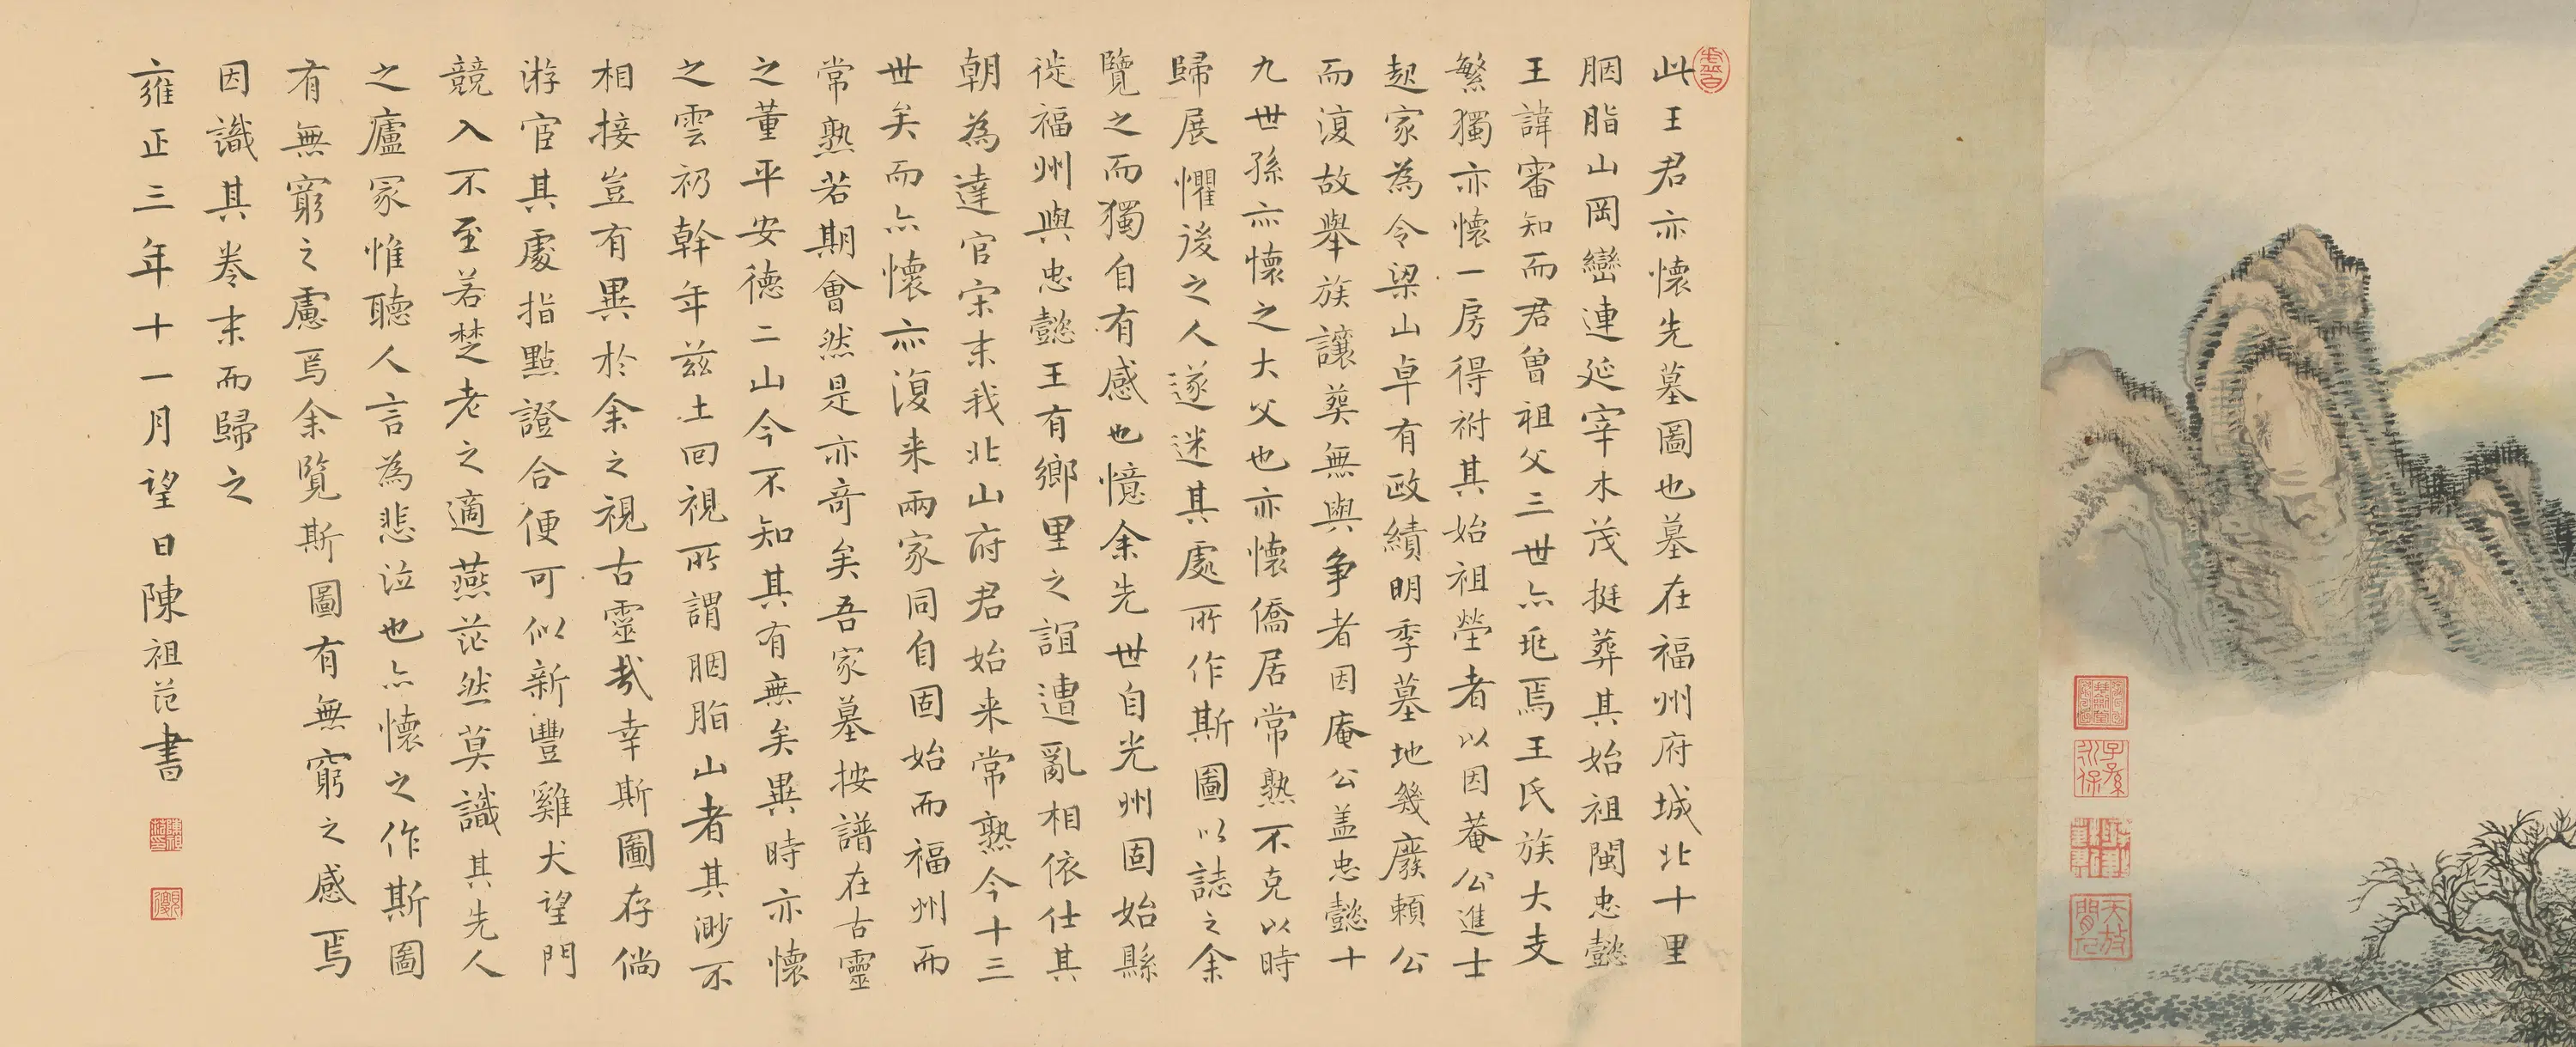 此王君亦懷先墓圖也墓在福州府城北十里
胭脂山岡巒連延宰木茂挺葬其始祖閩忠懿
王諱審知而君曾祖父三世亦祔焉王氏族大支
繁獨亦懷一房得祔其始祖塋者以因菴公進士
起家為令梁山卓有政績明季墓地幾廢賴公
而復故舉族讓葬無與爭者因庵公盖忠懿十
九世孫亦懷之大父也亦懷僑居常熟不克以時
歸展懼後之人遂迷其處所作斯圖以誌之余
覽之而獨自有感也憶余先世自光州固始縣
徙福州與忠懿王有鄉里之誼遭亂相依仕其
朝為達官宋末我北山府君始来常熟今十三
世矣而亦懷亦復来兩家同自固始而福州而
常熟若期會然是亦竒矣吾家墓按譜在古靈
之董平安德二山今不知其有無矣異時亦懷
之雲礽幹年兹土回視所謂胭脂山者其渺不
相接豈有異於余之視古靈㢤幸斯圖存倘
游宦其處指點證合便可似新豐雞犬望門
競入不至若楚老之適燕茫然莫識其先人
之廬冢惟聽人言為悲泣也亦懷之作斯圖
有無窮之慮焉余覽斯圖有無窮之感焉
因識其卷末而歸之
雍正三年十一月望日陳祖范書
子孫永保
天放閒人